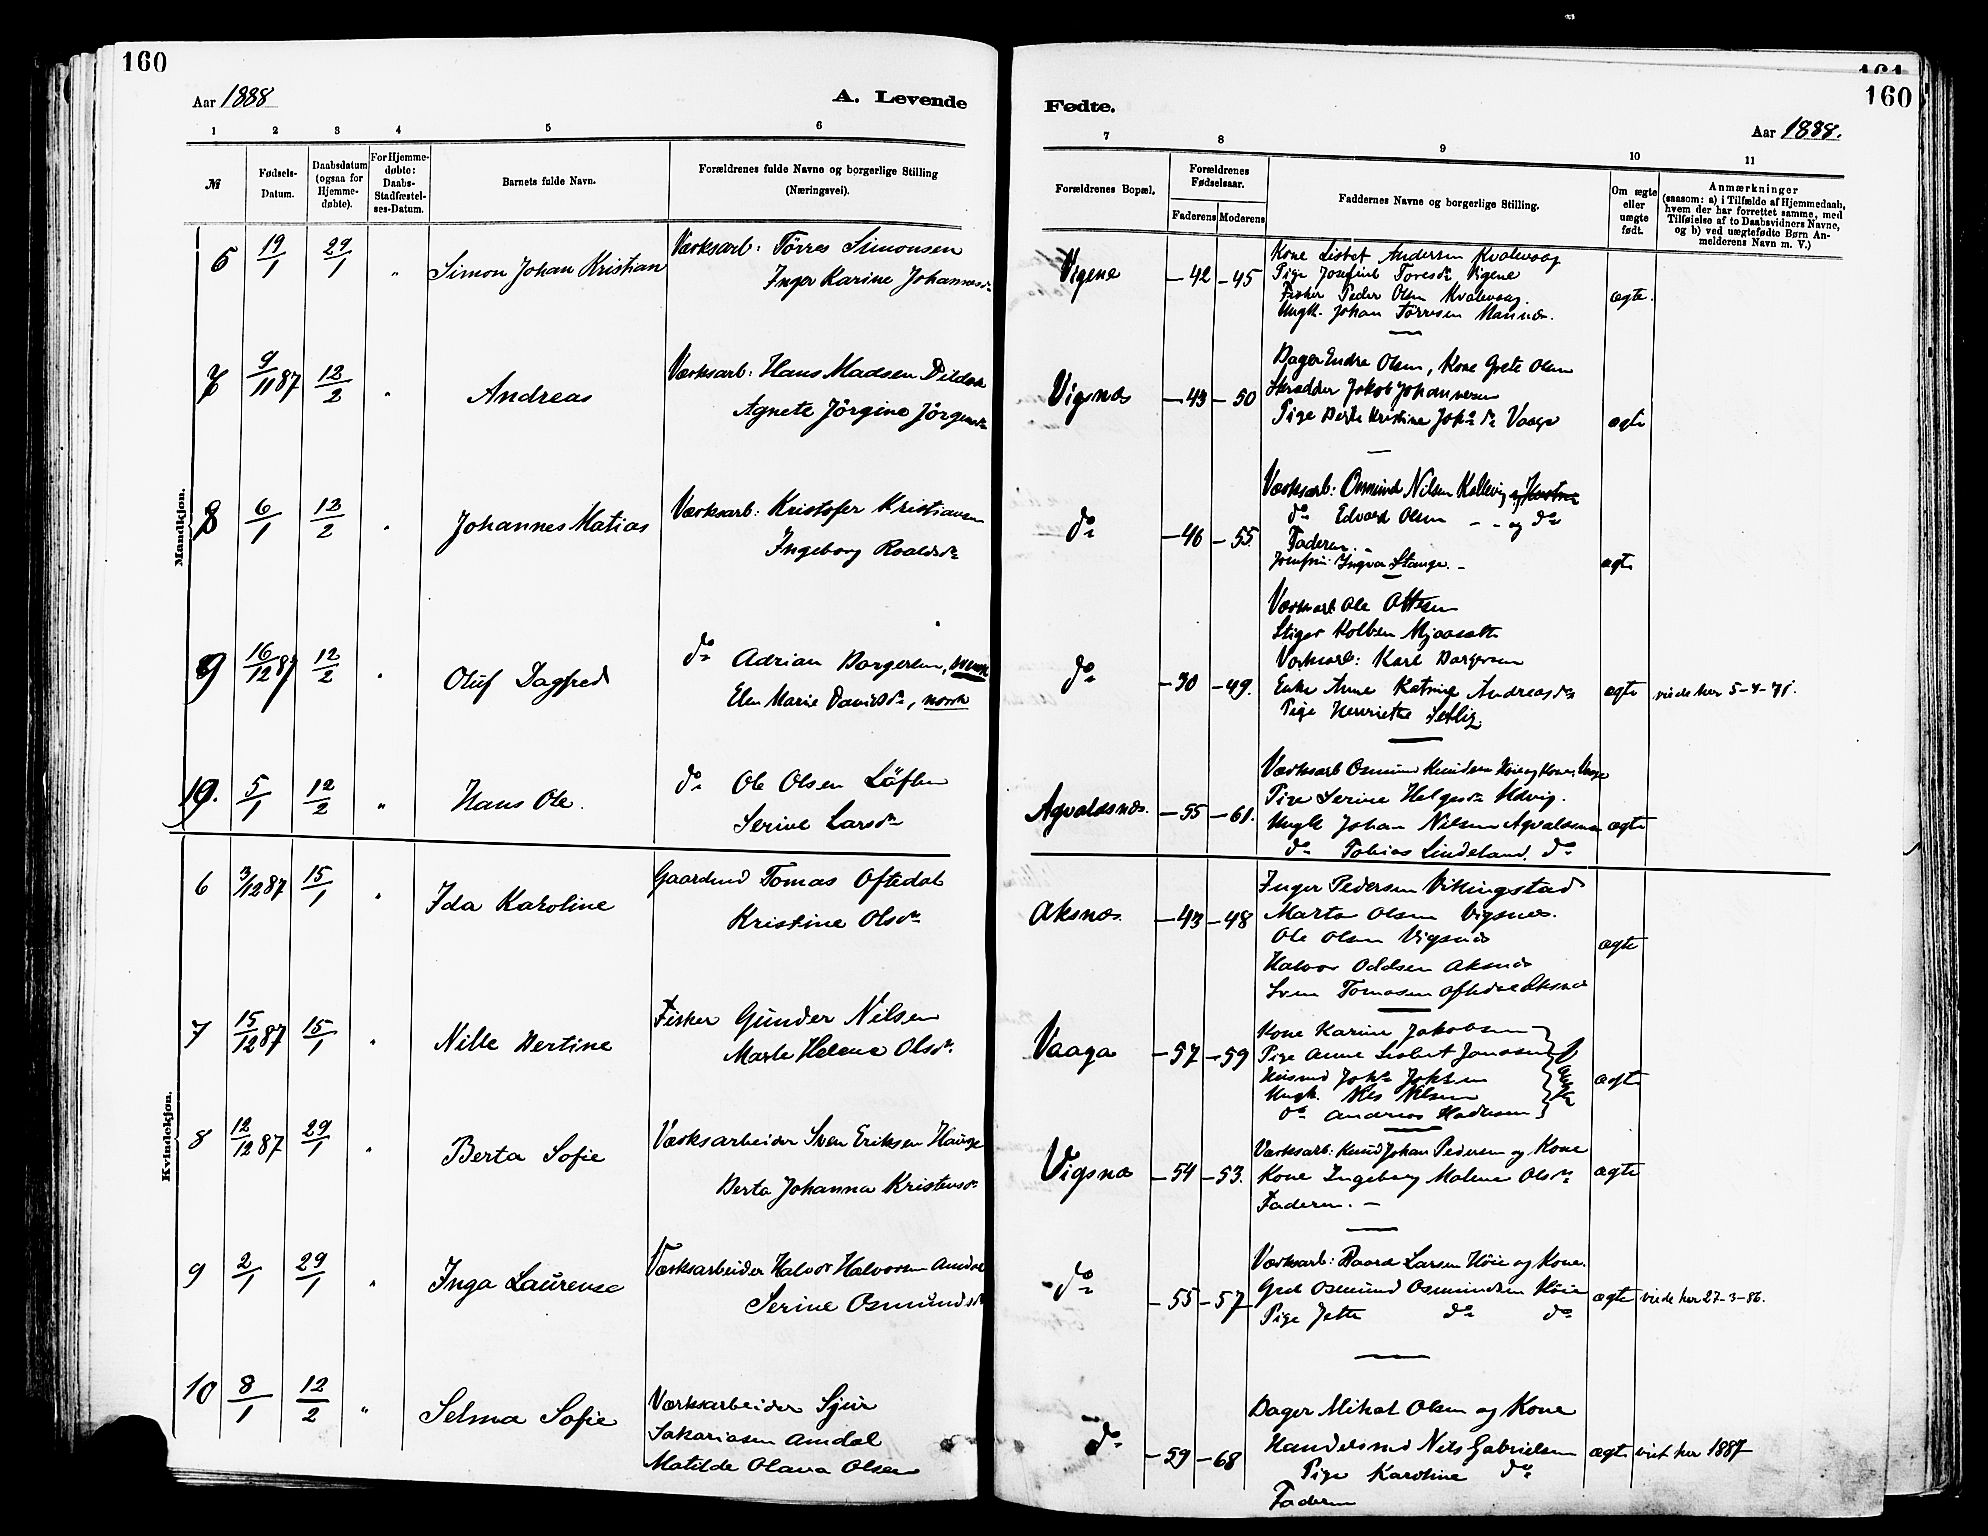 160
161
160
Aar 1888
A. Levende
Fødte.
Aar 1888.
1 2 3 4 5 6 7 8 9 10 11
№
Fødsels-Datum.
Daabsdatum (ogsaa for Hjemme-døbte).
For Hjemme-døbte: Daabs-Stadfæstel-ses-Datum.
Barnets fulde Navn.
Forældrenes fulde Navne og borgerlige Stilling (Næringsvei).
Forældrenes Bopæl.
Forældrenes Fødselsaar.
Faderens Moderens
Faddernes Navne og borgerlige Stilling.
Om ægte eller uægte født.
Anmærkninger (saasom: a) i Tilfælde af Hjemmedaab, hvem der har forrettet samme, med Tilføielse af to Daabsvidners Navne, og b) ved uægtefødte Børn An-melderens Navn m. V.)
Mandkjøn.
6 19/1 29/1 " Simon Johan Kristian
Værksarb: Tørres Simonsen
Inger Karine Johannesdr
Vigene -42 -45
Kone Lisbet Andersen Kvalevaag
Pige Josefine Toresdr Vigene
Fisker Peder Olsen Kvalevaag.
Ungk. Johan Tørresen
ægte.
7 9/11 87 12/2 " Andreas
Værksarb: Hans Madsen
Agnete Jörgine Jörgensdr
Vigsnæs -43 -50
Bager Endre Olsen, Kone Grete Olsen
Skrædder Jakob Johannesen
Pige Berte Kristine Johsdr Vaage
ægte
8 6/1 12/2 " Johannes Matias
Værksarb: Kristofer Kristiansen
Ingeborg Roaldsdr
do -46 -55
Værksarb: Osmund Nilsen Kallevig
do Edvard Olsen - - og do
Faderen
Ingvar Stange. -
ægte
9 16/12 87 12/2 " Oluf Dagfred
do Adrian Borgersen, svensk
Elen Marie Davidsdr, norsk
do -30 -49.
Værksarb Ole Ottesen
Stiger Kolben
Værksarb: Karl Borgersen
Enke Anne Katrine Andreasdr
Pige Henriette
ægte viede her 5-4-71.
10. 5/1 12/2 " Hans Ole.
do Ole Olsen Löflen
Serine Larsdr
Agvaldsnæs. -55 -61.
Værksarb Osmund Knudsen Høie og Kone,
Pige Serine Helgesdr
Ungk Johan Nilsen Agvaldsnæs
do Tobias Lindeland. do
ægte
Kvindekjøn.
6 3/12 87 15/1 " Ida Karoline
Gaardmd Tomas Oftedal
Kristine Olsdr
Aksnæs. -43 -48
Inger Pedersen Vikingstad
Marta Olsen Vigsnæs.
Ole Olsen Vigsnæs
Halvor Oddsen Aksnæs
Sven Tomasen Oftedal Aksnæs
ægte
7 15/12 87 15/1 " Nille Bertine
Fisker Gunder Nilsen
Marte Helene Olsdr.
Vaaga -57 -59
Kone Karine Jakobsen
Pige Anne Lisbet Jonasen
Husmd Johs Johsen
Ungk. Nils Nilsen
do Andreas
ægte
8 12/12 87 29/1 " Berta Sofie
Værksarbeider Sven Eriksen Hauge
Berta Johanna Kristensdr
Vigsnæs -54 -53.
Værksarb: Knud Johan Pedersen og Kone
Kone Ingeborg Malene Olsdr
Faderen. -
ægte
9 2/1 29/1 " Inga Laurense
Værksarbeider Halvor Halvorsen Amdal
Serine Osmundsdr
do -55 -57
Værksarb: Baard Larsen Høie og Kone.
Osmund Osmundsen Høie
Pige Jette do do
ægte viede her 27-3-86.
10 8/1 12/2 " Selma Sofie
Værksarbeider Sjur
Sakariasen Amdal
Matilde Olava Olsen
do -59 -68
Bager Mikal Olsen og Kone
Handelsmd Nils Gabrielsen
Pige Karoline do
Faderen
ægte viet her 1887